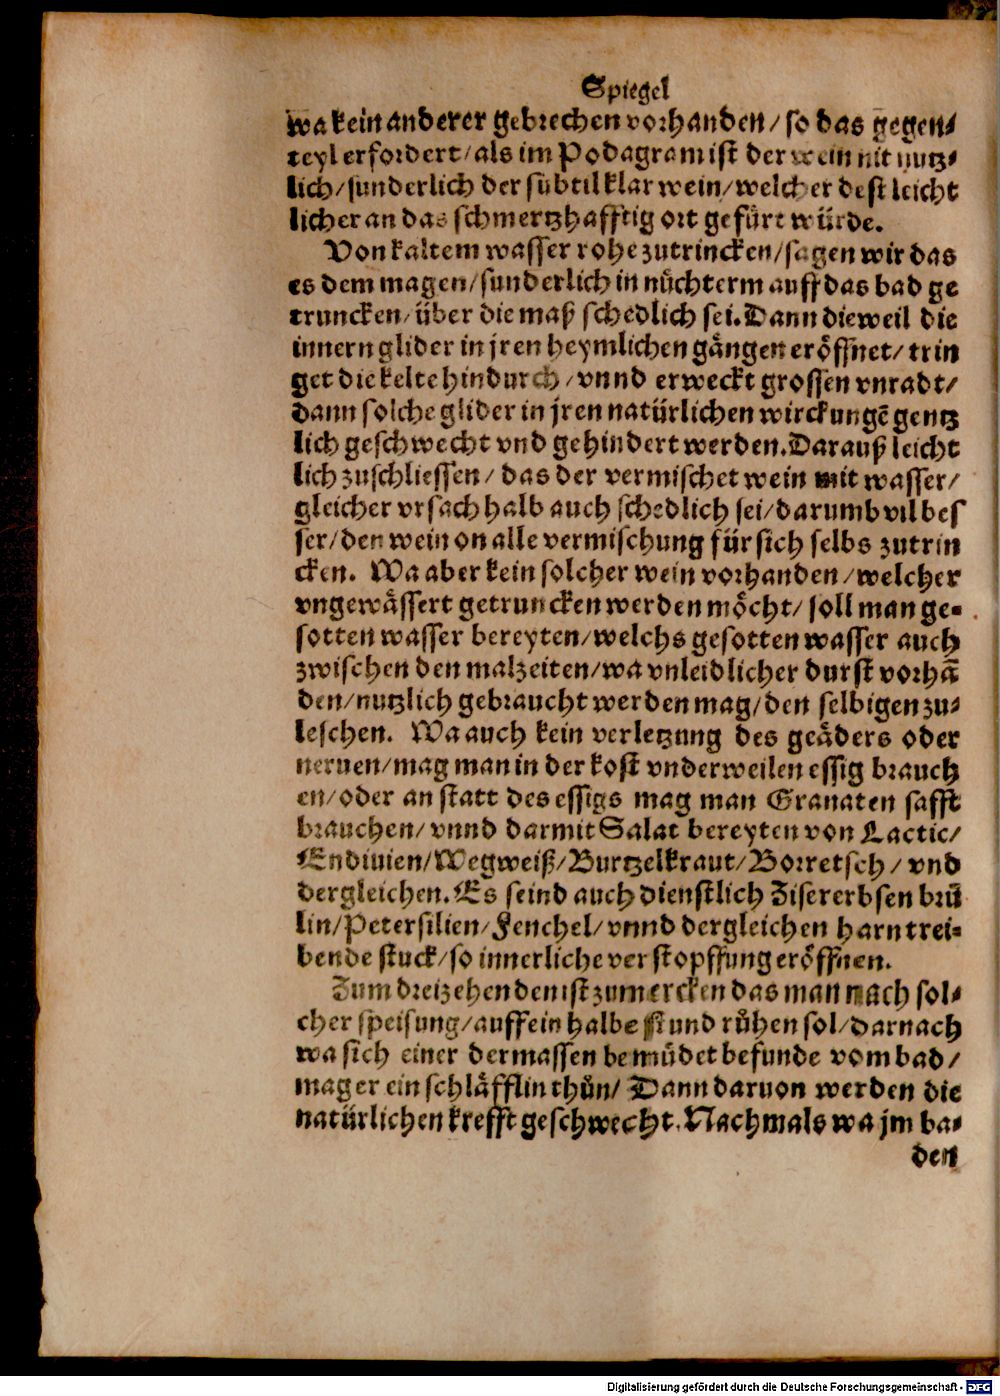 Spiegel
wa kein anderer gebrechen vorhanden/ so das gegen⸗
teyl erfordert/ als im Podagram ist der wein nit nutz⸗
lich/ sunderlich der subtil klar wein/ welcher dest leicht
licher an das schmertzhafftig ort gefürt würde.
Von kaltem wasser rohe zutrincken/ sagen wir das
es dem magen/ sunderlich in nüchterm auff das bad ge
truncken/ über die maß schedlich sei. Dann dieweil die
innern glider in jren heymlichen gängen eröffnet/ trin
get die kelte hindurch/ vnnd erweckt grossen vnradt/
dann solche glider in jren natürlichen wirckungē gentz
lich geschwecht vnd gehindert werden. Darauß leicht
lich zuschliessen/ das der vermischet wein mit wasser/
gleicher vrsach halb auch schedlich sei/ darumb vil bes
ser/ den wein on alle vermischung für sich selbs zutrin
cken. Wa aber kein solcher wein vorhanden/ welcher
vngewässert getruncken werden möcht/ soll man ge⸗
sotten wasser bereyten/ welchs gesotten wasser auch
zwischen den malzeiten/ wa vnleidlicher durst vorhā
den/ nutzlich gebraucht werden mag/ den selbigen zu⸗
leschen. Wa auch kein verletzung des geäders oder
neruen/ mag man in der kost vnderweilen essig brauch
en/ oder an statt des essigs mag man Granaten safft
brauchen/ vnnd darmit Salat bereyten von Lactic/
Endiuien/ Wegweiß/ Burtzelkraut/ Borretsch/ vnd
dergleichen. Es seind auch dienstlich Zisererbsen brü
lin/ Petersilien/ Fenchel/ vnnd dergleichen harntrei⸗
bende stuck/ so innerliche verstopffung eröffnen.
Zum dreizehenden ist zumercken das man nach sol⸗
cher speisung/ auff ein halbe stund růhen sol/ darnach
wa sich einer dermassen bemüdet befunde vom bad/
mag er ein schläfflin thůn/ Dann daruon werden die
natürlichen krefft geschwecht. Nachmals wa jm ba⸗
den
Digitalisierung gefördert durch die Deutsche Forschungsgemeinschaft - DFG